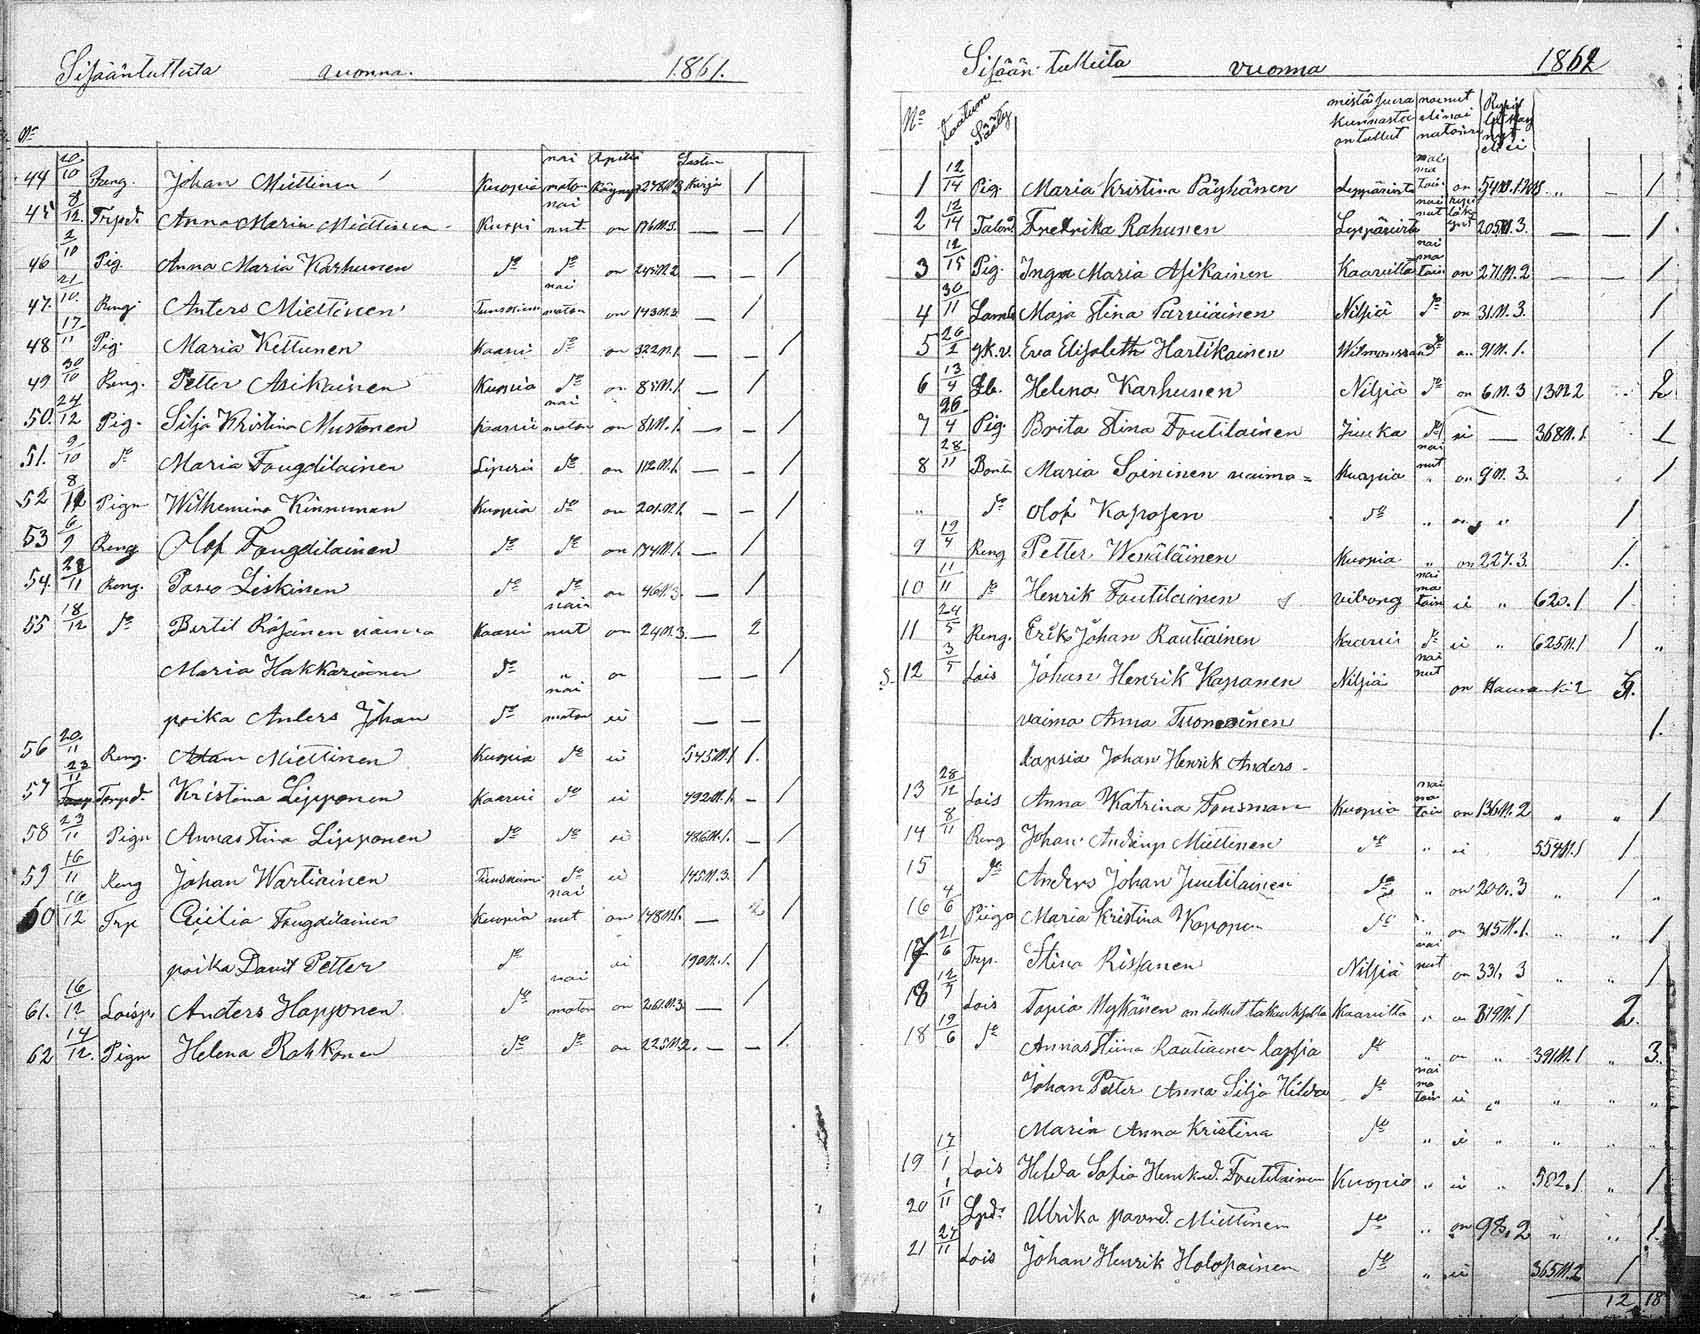 Sisääntulleita vuonna. 1861.
No
44 20/10 Reng. Johan Miettinen Kuopio naimaton Ripillä käynyt 278 N.3 Lasten kirja 1
45 8/12 Trpd. Anna Maria Miettinen Kuopi nainut on 176 N.3. — — 1
46 2/10 Pig. Anna Maria Karhunen do do on 245 N.2 — — 1
47. 21/10. Reng Anters Miettinen naimaton on 143 N.3 — 1
48 17/11 Pig. Maria Kettunen Kaavi do on 322 N.1. — — 1
49 30/10 Reng. Petter Asikainen Kuopio do on 85 N.1. — 1
50. 24/12 Pig. Silja Kristina Mustonen Kaavi naimaton on 81 N.1. — — 1
51. 9/10 do Maria Fougdilainen Liperi do on 112 N.1. — — 1
52 8/12 Pign Wilhemina Kinnunen Kuopio do on 201 N.1. — — 1
53 6/9 Reng Olof Fougdilainen do do on 174 N.1. — 1
54. 28/11 Reng. Paavo Liskinen do do on 46 N.3. — 1
55 18/12 do Bertil Räsänen vaimo Kaavi nainut on 24 N.3. — 2
Maria Hakkarainen do " on — — 1
poika Anders Johan do naimaton ei — —
56 20/11 Reng. Adam Miettinen Kuopio do ei 545 N.1 1.
57 23/11 Torpd. Kristina Lipponen Kaavi do ei 492 N.1. — 1
58 23/11 Pign Annastina Lipponen do do ei 486 N.1. — 1
59 16/11 Reng Johan Wartiainen do ei 145 N.3. 1
60 16/12 Trp Cicilia Fougdilainen Kuopio nainut on 148 N.1. — 1
poika David Petter do ei 190 N.1. 1
61. 16/12 Loisp. Anders Happonen do naimaton on 261 N.3 — 1
62 14/12. Pign Helena Rahkonen do do on 225 N.2. — — 1.
Sisään tulleita vuonna 1862
No Sääty mistä seurakunnasta on tullut nainut elinai naton
1 12/14 Pig. Maria Kristina Päyhänen Leppävirta naimatoin on 1
2 12/14 Fredrika Rahunen Leppävirta nainut 205 N.3. — — 1
3 12/15 Pig. Inga Maria Asikainen Kaavilta naimatoin on 271 N.2 — — 1
4 30/11 Maja Stina Parviainen Nilsiä do on 31 N.3. 1
5 26/2 Eva Elisabeth Hartikainen do on 91 N.1. 1
6 13/4 Helena Karhunen Nilsiä do on 6 N.3 13 N.2 2
7 26/4 Pig. Brita Stina Foutilainen Juuka do ei — 368 N.1. 1
8 28/11 Maria Soininen vaimo = Kuopio nainut on 9 N.3. 1
" do Olof Kaposen do " on " " 1
9 12/4 Reng Petter Wenäläinen Kuopio " on 227.3. 1.
10 11/11 do Henrik Foutilainen viborg naimatoin ei " 620.1 1.
11 24/5 Reng. Erik Johan Rautiainen Kaavi do ei " 625 N.1 1 "
12 3/5 Lois Johan Henrik Kaponen Nilsiä nainut on
vaima Anna Tuomainen 1.
lapsia Johan Henrik Anders
13 28/12 Lois Anna Katrina Fonsman Kuopio naimatoin on 136 N.2 " " 1
14 8/11 Reng Johan Miettinen do " ei 554 N.1 1
15 do Anders Johan Juutilainen do " on 200.3 " 1 "
16 4/6 Piiga Maria Kristina Koponen do " on 315 N.1. " " 1
17 21/6 Trp. Stina Rissanen Nilsiä nainut on 331. 3 " " 1
18 12/7 Lois Tapia Mykänen on tullut Kaavilta " on 319 N.1 2.
18 19/6 do Annastiina Rautiainen lapsia do " on " 391 N.1 " 3.
Johan Petter Anna Silja Hilda do naimatoin ei " " " "
Maria Anna Kristina do " ei " " " "
19 17/1 Lois Hilda Sofia Henrikd. Foutilainen Kuopio " ei " 582.1 " 1
20 1/11 Ulrika Miettinen do " on 98.2 " " 1.
21 27/11 Lois Johan Henrik Holopainen do " ei 365 N.2 1
12 18